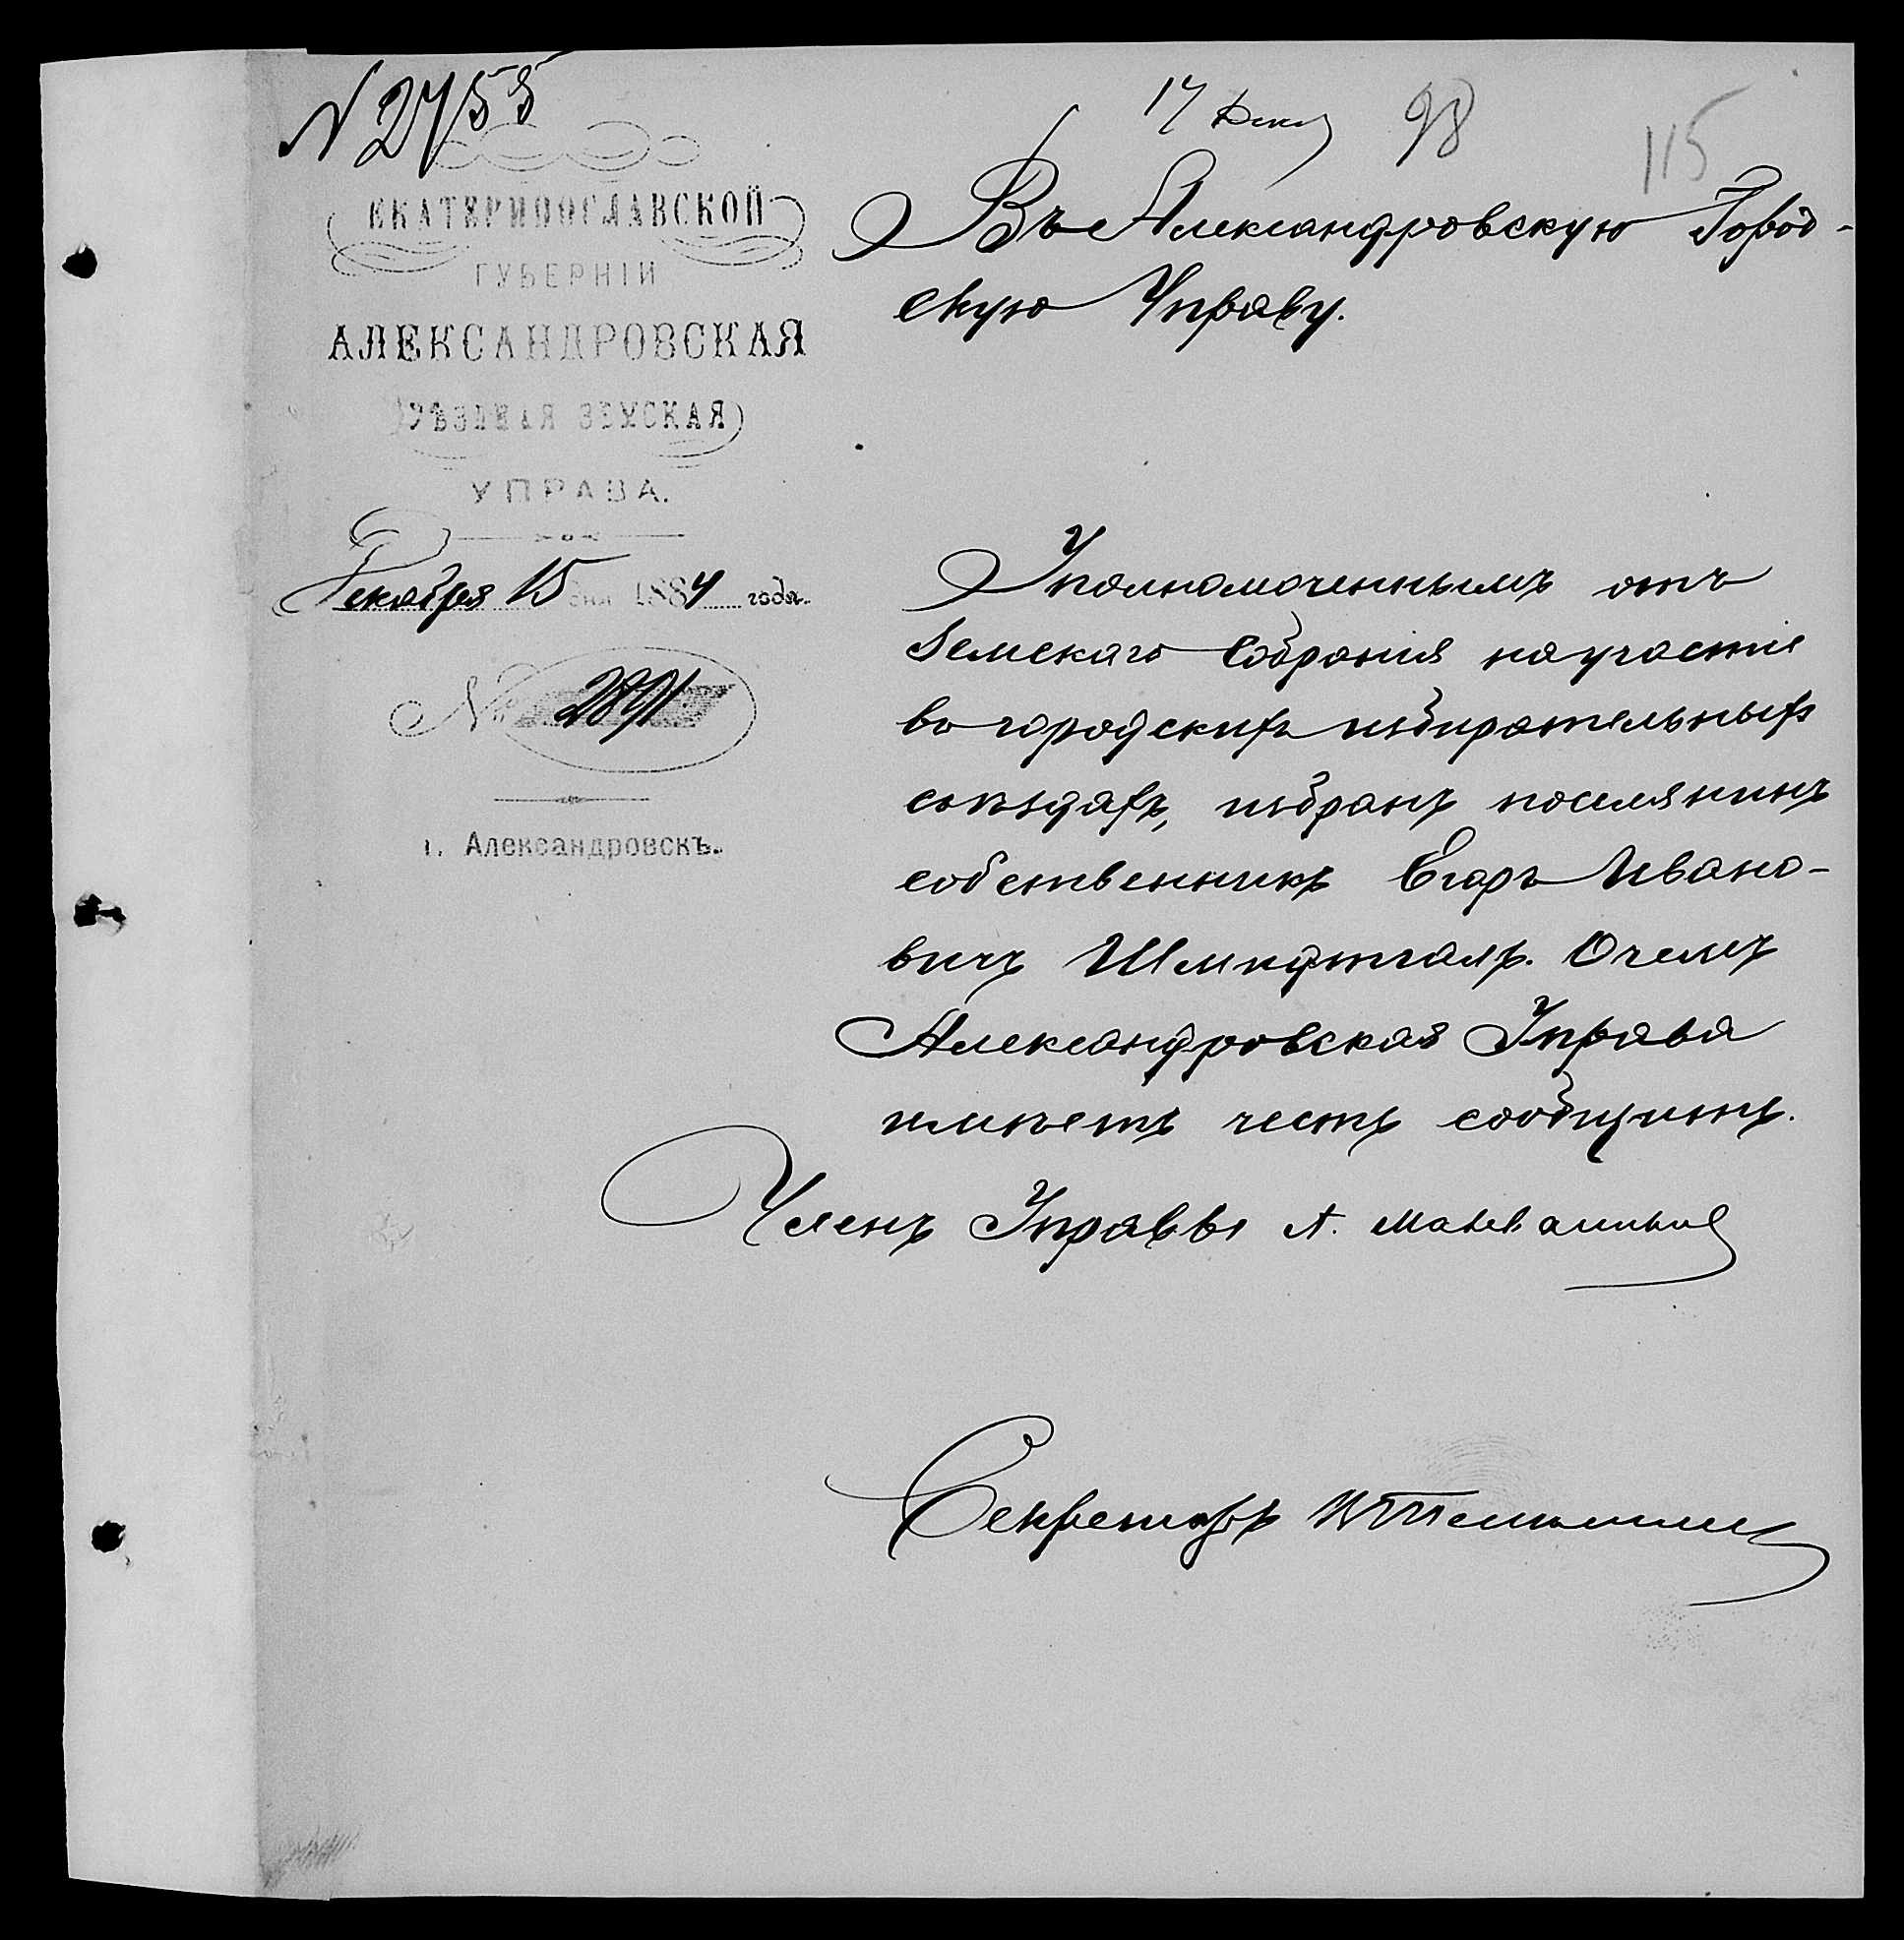 N 2755
17 Дек 98
115
ЕКАТЕРИНОСЛАВСКОЙ
ГУБЕРНІИ
АЛЕКСАНДРОВСКАЯ
УѢЗДНАЯ ЗЕМСКАЯ
УПРАВА.
Декабря 15 дня 1884 года.
№ 2891
г. Александровскъ.
Въ Александровскую Город-
скую Управу.
Уполномоченнымъ отъ
Земскаго Собранія на участіе
въ городскихъ избирательныхъ
съѣздахъ, избранъ поселянинъ
собственникъ Егоръ Ивано-
вичъ Шмидтгаль. О чемъ
Александровская Управа
имѣетъ честь сообщить.
Членъ Управы А.
Секретарь